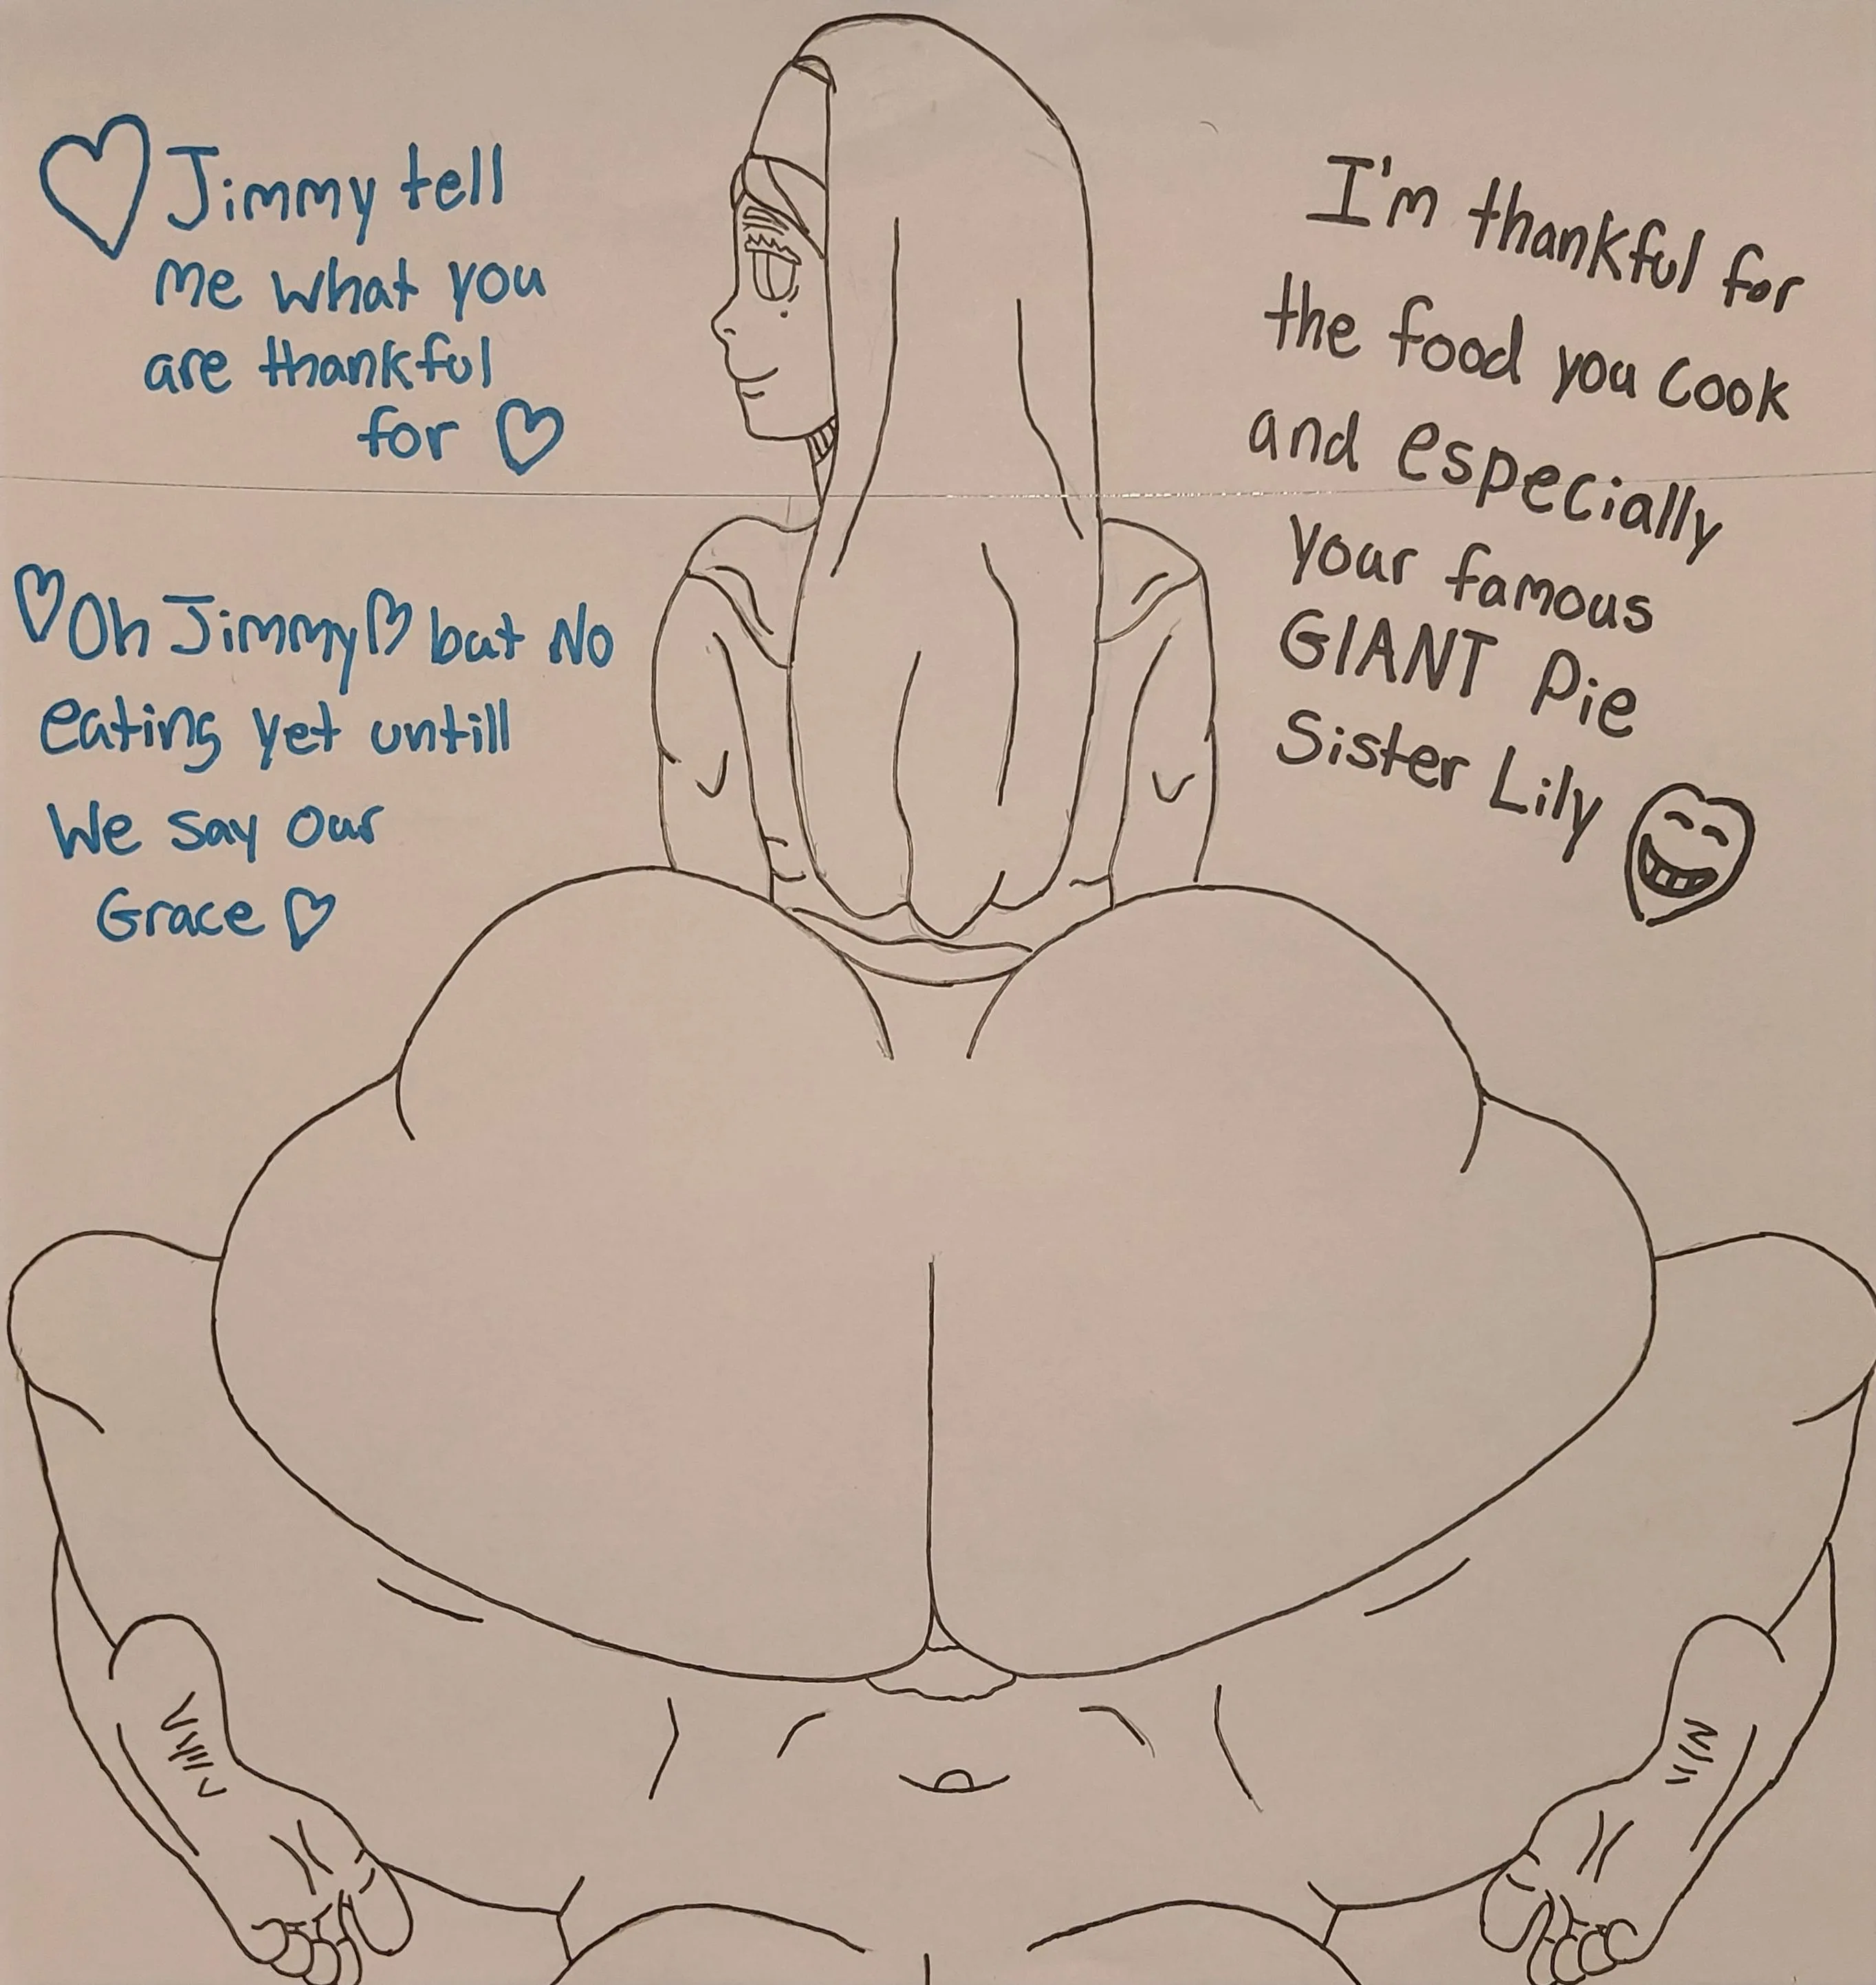 Jimmy tell
me what you
are thankful
for
I'm thankful for
the food you cook
and especially
your famous
GIANT Pie
Sister Lily
Oh Jimmy but No
eating yet untill
We say our
Grace